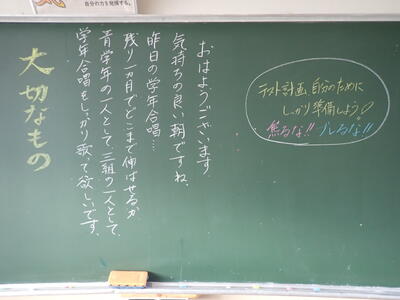 自分の力を発揮する。
おはようございます
気持ちの良い朝ですね。
昨日の学年合唱…
残り一ヵ月でどこまで伸ばせるか
青学年の一人として、三組の一人として、
学年合唱をしっかり歌って欲しいです。
大切なもの
テスト計画、自分のために
しっかり準備しよう
焦るな!! ブレるな!!